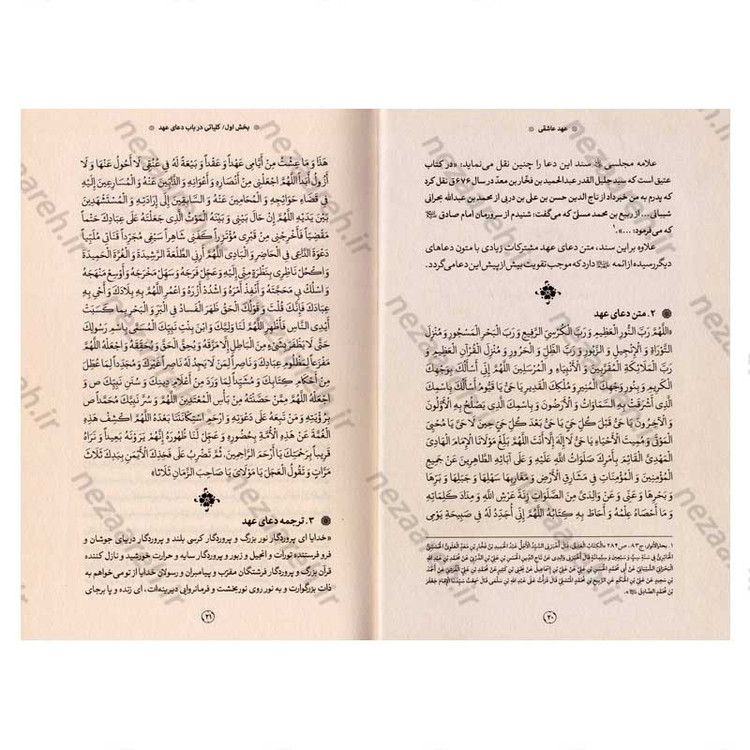 عهد عاشقی
علامه مجلسی سند این دعا را چنین نقل می‌نماید: «در کتاب
عتیق است که سید جلیل القدر عبدالحمید بن فخّار بن معدّ در سال ۶۷۶ق نقل کرد
که پدرم به من خبر داد از تاج الدین حسن بن علی بن دربی از محمد بن عبدالله بحرانی
شیبانی... از ربیع بن محمد مسلّی که می‌گفت: شنیدم از سرورمان امام صادق
که می‌فرمود: ...».۱
علاوه بر این سند، متن دعای عهد مشترکات زیادی با متون دعاهای
دیگر رسیده از ائمه دارد که موجب تقویت بیش از پیش این دعا می‌گردد.
۲. متن دعای عهد
«اللَّهُمَّ رَبَّ النُّورِ الْعَظِيمِ وَ رَبَّ الْكُرْسِيِّ الرَّفِيعِ وَ رَبَّ الْبَحْرِ الْمَسْجُورِ وَ مُنْزِلَ
التَّوْرَاةِ وَ الْإِنْجِيلِ وَ الزَّبُورِ وَ رَبَّ الظِّلِّ وَ الْحَرُورِ وَ مُنْزِلَ الْقُرْآنِ الْعَظِيمِ وَ
رَبَّ الْمَلَائِكَةِ الْمُقَرَّبِينَ وَ الْأَنْبِيَاءِ وَ الْمُرْسَلِينَ اللَّهُمَّ إِنِّي أَسْأَلُكَ بِوَجْهِكَ
الْكَرِيمِ وَ بِنُورِ وَجْهِكَ الْمُنِيرِ وَ مُلْكِكَ الْقَدِيمِ يَا حَيُّ يَا قَيُّومُ أَسْأَلُكَ بِاسْمِكَ
الَّذِي أَشْرَقَتْ بِهِ السَّمَاوَاتُ وَ الْأَرَضُونَ وَ بِاسْمِكَ الَّذِي يَصْلَحُ بِهِ الْأَوَّلُونَ
وَ الْآخِرُونَ يَا حَيُّ قَبْلَ كُلِّ حَيٍّ يَا حَيُّ بَعْدَ كُلِّ حَيٍّ حِينَ لَا حَيَّ يَا مُحْيِيَ
الْمَوْتَى وَ مُمِيتَ الْأَحْيَاءِ يَا حَيُّ لَا إِلَهَ إِلَّا أَنْتَ اللَّهُمَّ بَلِّغْ مَوْلَانَا الْإِمَامَ الْهَادِيَ
الْمَهْدِيَّ الْقَائِمَ بِأَمْرِكَ صَلَوَاتُ اللَّهِ عَلَيْهِ وَ عَلَى آبَائِهِ الطَّاهِرِينَ عَنْ جَمِيعِ
الْمُؤْمِنِينَ وَ الْمُؤْمِنَاتِ فِي مَشَارِقِ الْأَرْضِ وَ مَغَارِبِهَا سَهْلِهَا وَ جَبَلِهَا وَ بَرِّهَا
وَ بَحْرِهَا وَ عَنِّي وَ عَنْ وَالِدَيَّ مِنَ الصَّلَوَاتِ زِنَةَ عَرْشِ اللَّهِ وَ مِدَادَ كَلِمَاتِهِ
وَ مَا أَحْصَاهُ عِلْمُهُ وَ أَحَاطَ بِهِ كِتَابُهُ اللَّهُمَّ إِنِّي أُجَدِّدُ لَهُ فِي صَبِيحَةِ يَوْمِي
۱. بحارالأنوار، ج۸۳، ص۲۸۴
۳۰
بخش اول/ کلیاتی در باب دعای عهد
هَذَا وَ مَا عِشْتُ مِنْ أَيَّامِي عَهْداً وَ عَقْداً وَ بَيْعَةً لَهُ فِي عُنُقِي لَا أَحُولُ عَنْهَا وَ لَا
أَزُولُ أَبَداً اللَّهُمَّ اجْعَلْنِي مِنْ أَنْصَارِهِ وَ أَعْوَانِهِ وَ الذَّابِّينَ عَنْهُ وَ الْمُسَارِعِينَ إِلَيْهِ
فِي قَضَاءِ حَوَائِجِهِ وَ الْمُحَامِينَ عَنْهُ وَ السَّابِقِينَ إِلَى إِرَادَتِهِ وَ الْمُسْتَشْهَدِينَ
بَيْنَ يَدَيْهِ اللَّهُمَّ إِنْ حَالَ بَيْنِي وَ بَيْنَهُ الْمَوْتُ الَّذِي جَعَلْتَهُ عَلَى عِبَادِكَ حَتْماً
مَقْضِيّاً فَأَخْرِجْنِي مِنْ قَبْرِي مُؤْتَزِراً كَفَنِي شَاهِراً سَيْفِي مُجَرِّداً قَنَاتِي مُلَبِّياً
دَعْوَةَ الدَّاعِي فِي الْحَاضِرِ وَ الْبَادِي اللَّهُمَّ أَرِنِي الطَّلْعَةَ الرَّشِيدَةَ وَ الْغُرَّةَ الْحَمِيدَةَ
وَ اكْحُلْ نَاظِرِي بِنَظْرَةٍ مِنِّي إِلَيْهِ وَ عَجِّلْ فَرَجَهُ وَ سَهِّلْ مَخْرَجَهُ وَ أَوْسِعْ مَنْهَجَهُ
وَ اسْلُكْ بِي مَحَجَّتَهُ وَ أَنْفِذْ أَمْرَهُ وَ اشْدُدْ أَزْرَهُ وَ اعْمُرِ اللَّهُمَّ بِهِ بِلَادَكَ وَ أَحْيِ بِهِ
عِبَادَكَ فَإِنَّكَ قُلْتَ وَ قَوْلُكَ الْحَقُّ ظَهَرَ الْفَسَادُ فِي الْبَرِّ وَ الْبَحْرِ بِمَا كَسَبَتْ
أَيْدِي النَّاسِ فَأَظْهِرِ اللَّهُمَّ لَنَا وَلِيَّكَ وَ ابْنَ بِنْتِ نَبِيِّكَ الْمُسَمَّى بِاسْمِ رَسُولِكَ
حَتَّى لَا يَظْفَرَ بِشَيْءٍ مِنَ الْبَاطِلِ إِلَّا مَزَّقَهُ وَ يُحِقَّ الْحَقَّ وَ يُحَقِّقَهُ وَ اجْعَلْهُ اللَّهُمَّ
مَفْزَعاً لِمَظْلُومِ عِبَادِكَ وَ نَاصِراً لِمَنْ لَا يَجِدُ لَهُ نَاصِراً غَيْرَكَ وَ مُجَدِّداً لِمَا عُطِّلَ
مِنْ أَحْكَامِ كِتَابِكَ وَ مُشَيِّداً لِمَا وَرَدَ مِنْ أَعْلَامِ دِينِكَ وَ سُنَنِ نَبِيِّكَ ص وَ
اجْعَلْهُ اللَّهُمَّ مِمَّنْ حَصَّنْتَهُ مِنْ بَأْسِ الْمُعْتَدِينَ اللَّهُمَّ وَ سُرَّ نَبِيَّكَ مُحَمَّداً ص
بِرُؤْيَتِهِ وَ مَنْ تَبِعَهُ عَلَى دَعْوَتِهِ وَ ارْحَمِ اسْتِكَانَتَنَا بَعْدَهُ اللَّهُمَّ اكْشِفْ هَذِهِ
الْغُمَّةَ عَنْ هَذِهِ الْأُمَّةِ بِحُضُورِهِ وَ عَجِّلْ لَنَا ظُهُورَهُ إِنَّهُمْ يَرَوْنَهُ بَعِيداً وَ نَرَاهُ
قَرِيباً بِرَحْمَتِكَ يَا أَرْحَمَ الرَّاحِمِينَ. ثُمَّ تَضْرِبُ عَلَى فَخِذِكَ الْأَيْمَنِ بِيَدِكَ ثَلَاثَ
مَرَّاتٍ وَ تَقُولُ الْعَجَلَ يَا مَوْلَايَ يَا صَاحِبَ الزَّمَانِ ثَلَاثاً»
۳. ترجمه دعای عهد
«خدایا ای پروردگار نور بزرگ و پروردگار کرسی بلند و پروردگار دریای جوشان و
فرو فرستنده تورات و انجیل و زبور و پروردگار سایه و حرارت خورشید و نازل کننده
قرآن بزرگ و پروردگار فرشتگان مقرّب و پیامبران و رسولان خدایا از تو می خواهم به
ذات بزرگوارت و به نور روی نوربخشت و فرمانروایی دیرینه‌ات، ای زنده و پا برجای
۳۱
nezaareh.ir